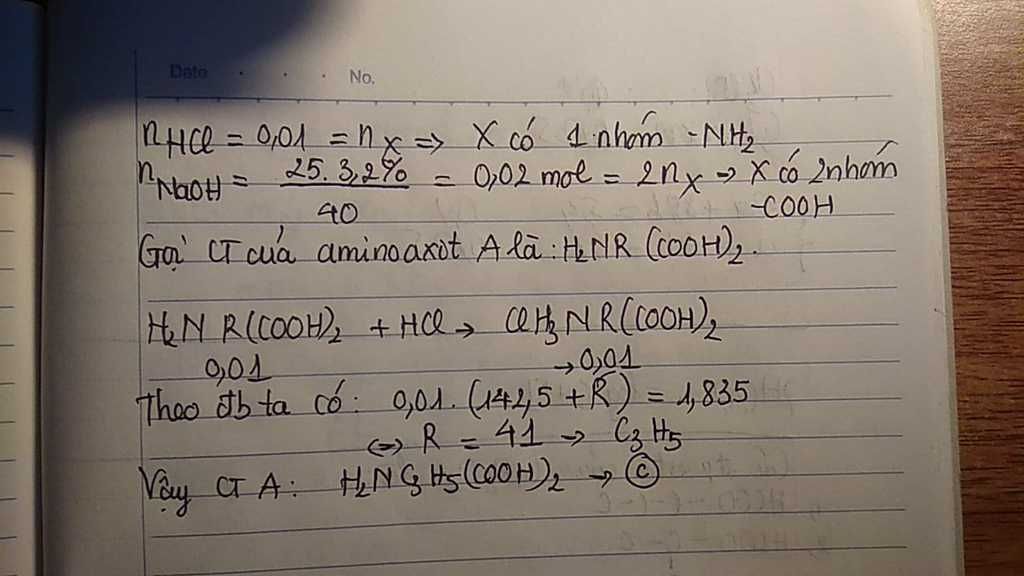 Date . . . No.
nHCl = 0,01 = nX => X có 1 nhóm -NH2
nNaOH = 25. 3,2% / 40 = 0,02 mol = 2nX → X có 2 nhóm -COOH
Gọi CT của aminoaxit A là: H2NR(COOH)2.
H2N R(COOH)2 + HCl → ClH3NR(COOH)2
0,01 → 0,01
Theo đb ta có: 0,01. (142,5 + R) = 1,835
<=> R = 41 → C3H5
Vậy CT A: H2NC3H5(COOH)2 → C